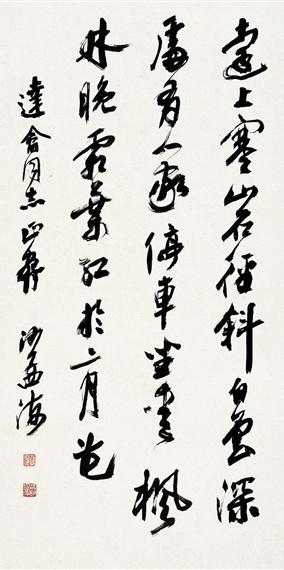 遠上寒山石徑斜白雲深
處有人家停車坐愛楓
林晚霜葉紅於二月花
達同志正 沙孟海